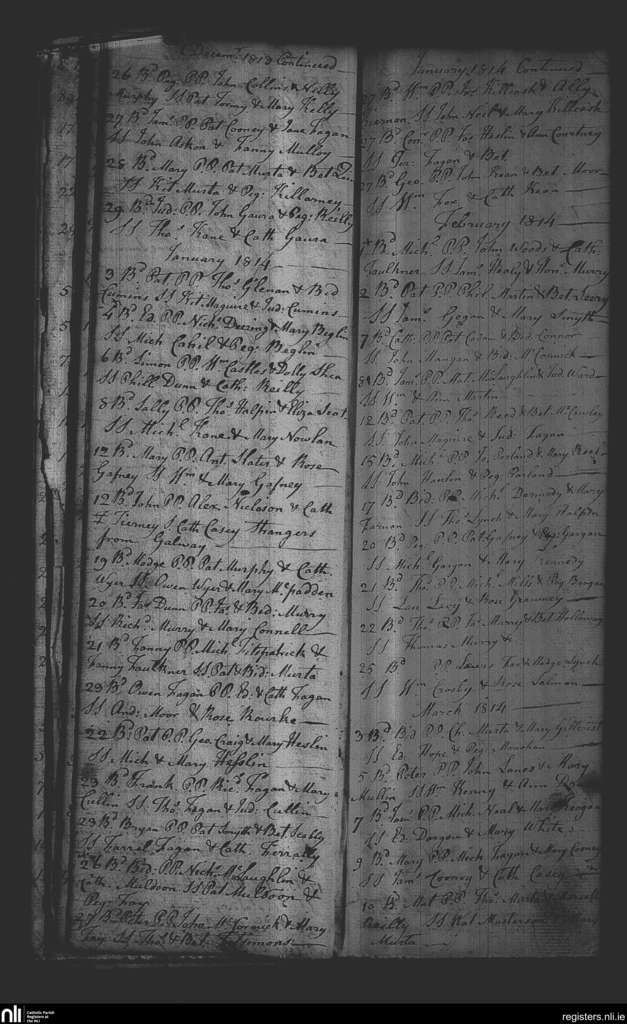 Decemr. 1813 Continued
26 Bd. Peg: P.P. John Collins & Nelly
Murphy SS Pat Tonny & Mary Kelly
27 Bd. Jams. P.P. Pat Cooney & Jane Fagan
SS John Aston & Fanny Mulloy
28 Bd. Mary P.P. Pat Murta & Bet
SS Kit Murta & Peg: Killarney
29 Bd. Jud: P.P. John Gaura & Peg: Reilly
SS Thos. Kane & Cath Gaura
January 1814
3 Bd. Pat P.P. Thos. Glenan & Brd
Cumins SS Kit Maguire & Jud: Cumins
4 Bd. Ed. P.P. Nichs. Deering & Mary Beglin
SS Mich Cahil & Peg: Beglin
6 Bd. Simon P.P. Wm. Castles & Dolly Shea
SS Phill Dunn & Cath: Reilly
8 Bd. Sally P.P. Thos. Halpin & Eliza Scot
SS. Michl. Kane & Mary Nowlan
12 Bd. Mary P.P. Ant. Slater & Rose
Gafney SS Wm & Mary Gafney
12 Bd. John P.P. Alex. Nicloson & Cath
Tierney S. Cath Casey Strangers
from Galway
19 Bd. Madge P.P. Pat. Murphy & Cath.
Wyer SS. Owen Wyer & Mary McPadden
20 Bd. Jas. Dunn P.P. Jas. & Brd: Murry
SS Richd: Murry & Mary Connell
21 Bd. Fanny P.P. Michl. Fitspatrick &
Fanny Faulkner SS Pat & Brd: Murta
23 Bd. Owen Fagan P.P. Ed. & Cath Fagan
SS And: Moor & Rose Rourke
22 Bd. Pat P.P. Geo. Craig & Mary Heslin
SS. Mich & Mary Heslin
23 Bd. Frank P.P. Ricd. Fagan & Mary
Cullin SS. Thos. Fagan & Jud. Cullin
23 Bd. Bryan P.P. Pat Smyth & Bet Scally
SS Farrel Fagan & Cath Ferrally
26 Bd. Brd. P.P. Nichs. McLaughlin &
Cath. Muldoon SS Pat Muldoon &
Peg: Fay
27 Bd. Peter P.P. John McCormick & Mary
Fay SS. Thos. & Bet. Fitsimons
January 1814 Continued
27 Bd. Wm. P.P. Jas. Killcash & Ally
Brennan SS John Neil & Mary Killcash
27 Bd. Con: P.P. Jas Heslin & Ann Courtney
SS Jas. Fagan & Bet.
27 Bd. Geo. P.P. John Kean & Bet. Moor
SS Wm. Fox & Cath Kean
February 1814
Bd. Mich. P.P. John Woods & Cath.
Faulkner SS Jams. Healy & Hon: Murry
2 Bd. Pat P.P. Phil. Martin & Bet
SS Jams. Gegan & Mary Smyth
7 Bd. Cath: P.P. Pat & Brd. Connor
SS. John Mangan & Brd: McCormick
8 Bd. Jams. P.P. Mat. McLaughlin & Jud. Ward
SS Wm & Ann Martin
12 Bd. Pat P.P. Thos. & Bet. McCauley
SS John Maguire & Jud: Fagan
15 Bd. Michl. P.P. Jn. & Mary
SS John Hanlin & Peg:
17 Bd. Brd. P.P. Michl. Darmody & Mary
SS Thos. Lynch & Mary Halpin
20 Bd. Peg P.P. Pat Gafney & Peg: Gargan
SS Michl Gargan & Mary
21 Bd. Thos. P.P. Mich. & Peg Brogan
SS Lau & Rose
22 Bd. Thos. P.P. Jas Murry & Bet
SS Thomas Murry &
25 Bd. P.P. & Madge Lynch
SS Wm Crosby & Rose Salmon
March 1814
3 Bd. Brd P.P. Ch. Murta & Mary
SS Ed. Hope & Peg: Monahan
5 Bd. Peter P.P. John & Mary
Mullin SS Wm Kenny & Ann
7 Bd. Jams. P.P. Mich. Neal & Keogan
SS Ed Dargan & Mary White
9 Bd. Mary P.P. Mich Fagan & Mary Cooney
SS Jams. Cooney & Cath Casey
10 Bd. Mat P.P. Thos.
Reilly SS Nat Masterson &
Murta
nli
Catholic Parish
Registers at
the NLI
registers.nli.ie